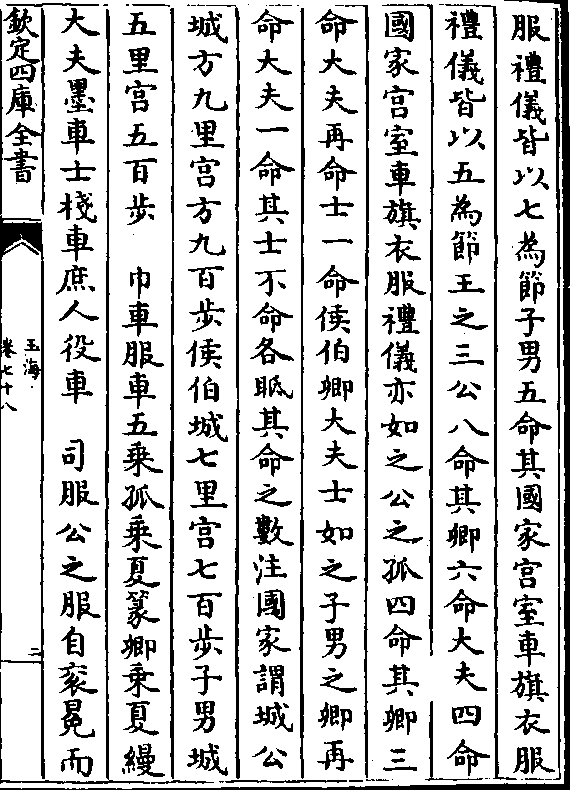 服禮儀皆以七為節子男五命其國家宫室車旗衣服
禮儀皆以五為節王之三公八命其卿六命大夫四命
國家宫室車旗衣服禮儀亦如之公之孤四命其卿三
命大夫再命士一命侯伯卿大夫士如之子男之卿再
命大夫一命其士不命各眂其命之數注國家謂城公
城方九里宫方九百步侯伯城七里宫七百步子男城
五里宫五百步　巾車服車五乗孤乗夏篆卿乗夏縵
大夫墨車士棧車庶人役車　司服公之服自衮冕而
欽定四庫全書
玉海
卷七十八
二